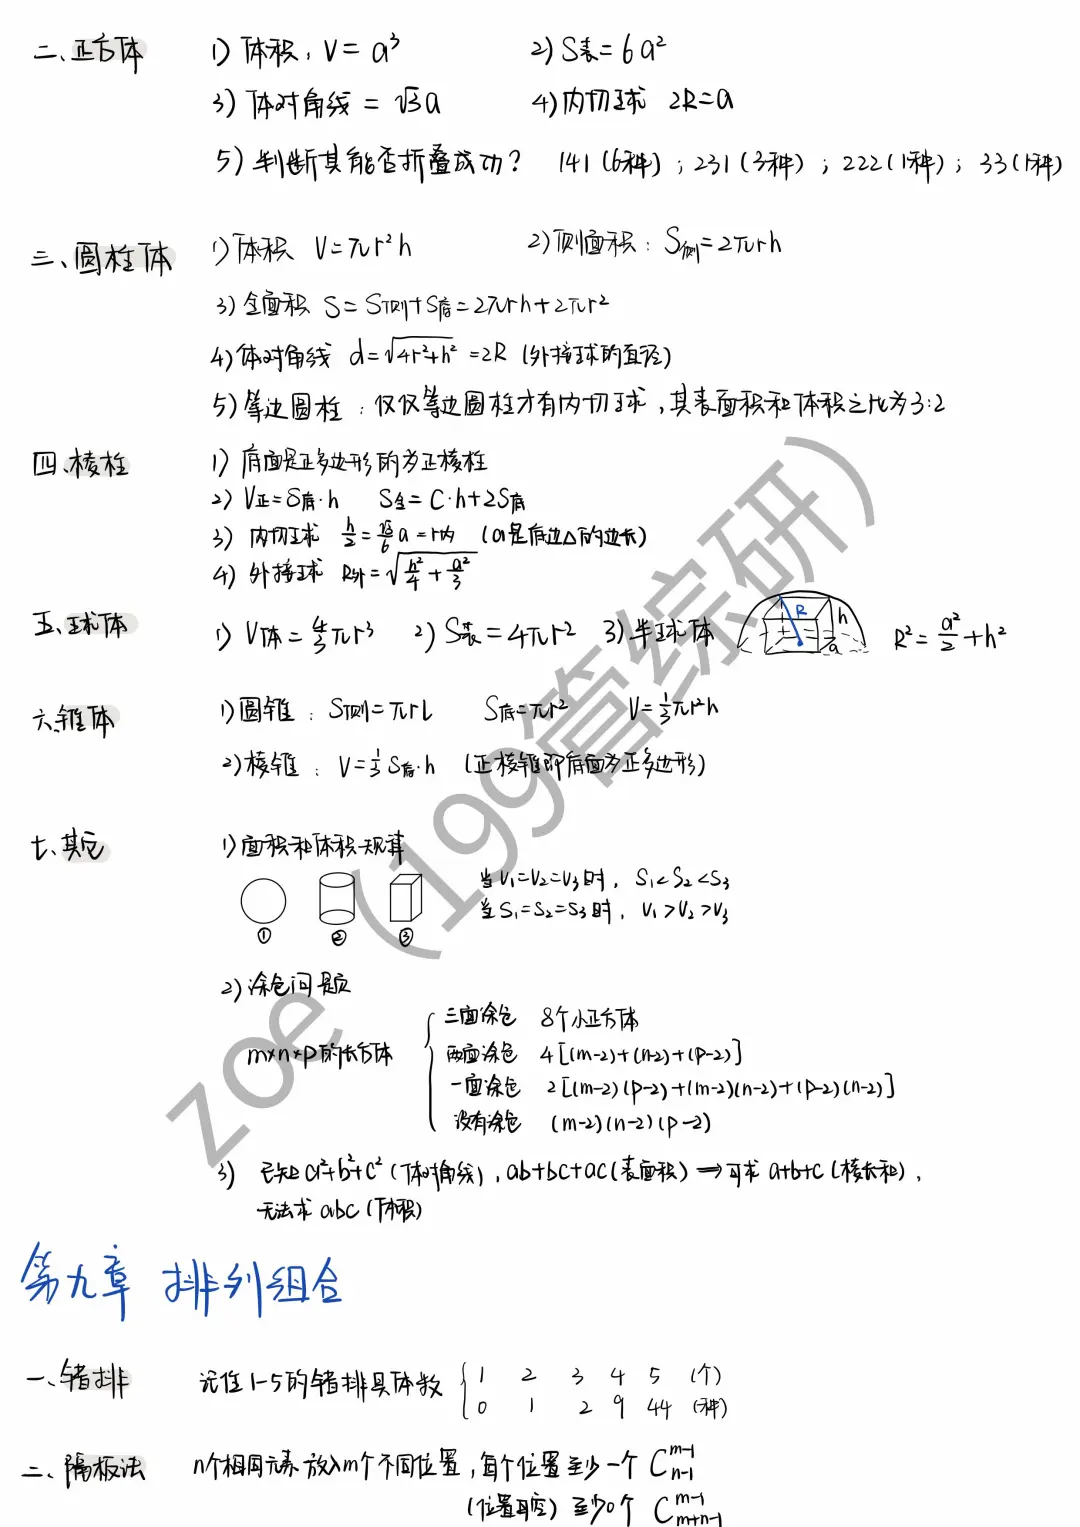 二、正方体 1) 体积: V = a³ 2) S表 = 6a²
3) 体对角线 = √3a 4) 内切球 2R=a
5) 判断其能否折叠成功? 141(6种); 231(3种); 222(1种); 33(1种)
三、圆柱体 1) 体积 V=πr²h 2) 侧面积: S侧=2πrh
3) 全面积 S=S侧+S底=2πrh+2πr²
4) 体对角线 d=√(4r²+h²) =2R (外接球的直径)
5) 等边圆柱: 仅仅等边圆柱才有内切球,其表面积和体积之比为3:2
四、棱柱 1) 底面是正多边形的为正棱柱
2) V正=S底·h S全=C·h+2S底
3) 内切球 h/2=√3/6 a=r内 (a是底边△的边长)
4) 外接球 R外=√(h²/4 + a²/3)
五、球体 1) V体=4/3πr³ 2) S表=4πr² 3) 半球体 R h a R²=a²/2+h²
六、锥体 1) 圆锥: S侧=πrl S底=πr² V=1/3πr²h
2) 棱锥: V=1/3 S底·h (正棱锥即底面为正多边形)
七、其它 1) 面积和体积规律
当V₁=V₂=V₃时, S₁<S₂<S₃
当S₁=S₂=S₃时, V₁>V₂>V₃
① ② ③
2) 涂色问题
m×n×p的长方体
三面涂色 8个小正方体
两面涂色 4[(m-2)+(n-2)+(p-2)]
一面涂色 2[(m-2)(p-2)+(m-2)(n-2)+(p-2)(n-2)]
没有涂色 (m-2)(n-2)(p-2)
3) 已知a²+b²+c²(体对角线), ab+bc+ac(表面积) ⇒ 可求 a+b+c(棱长和),
无法求 abc(体积)
第九章 排列组合
一、错排 记住1-5的错排具体数 1 2 3 4 5 (个)
0 1 2 9 44 (种)
二、隔板法 n个相同元素放入m个不同位置,每个位置至少一个 C_{n-1}^{m-1}
(位置可空) 至少0个 C_{m+n-1}^{m-1}
zoe (199管综研)